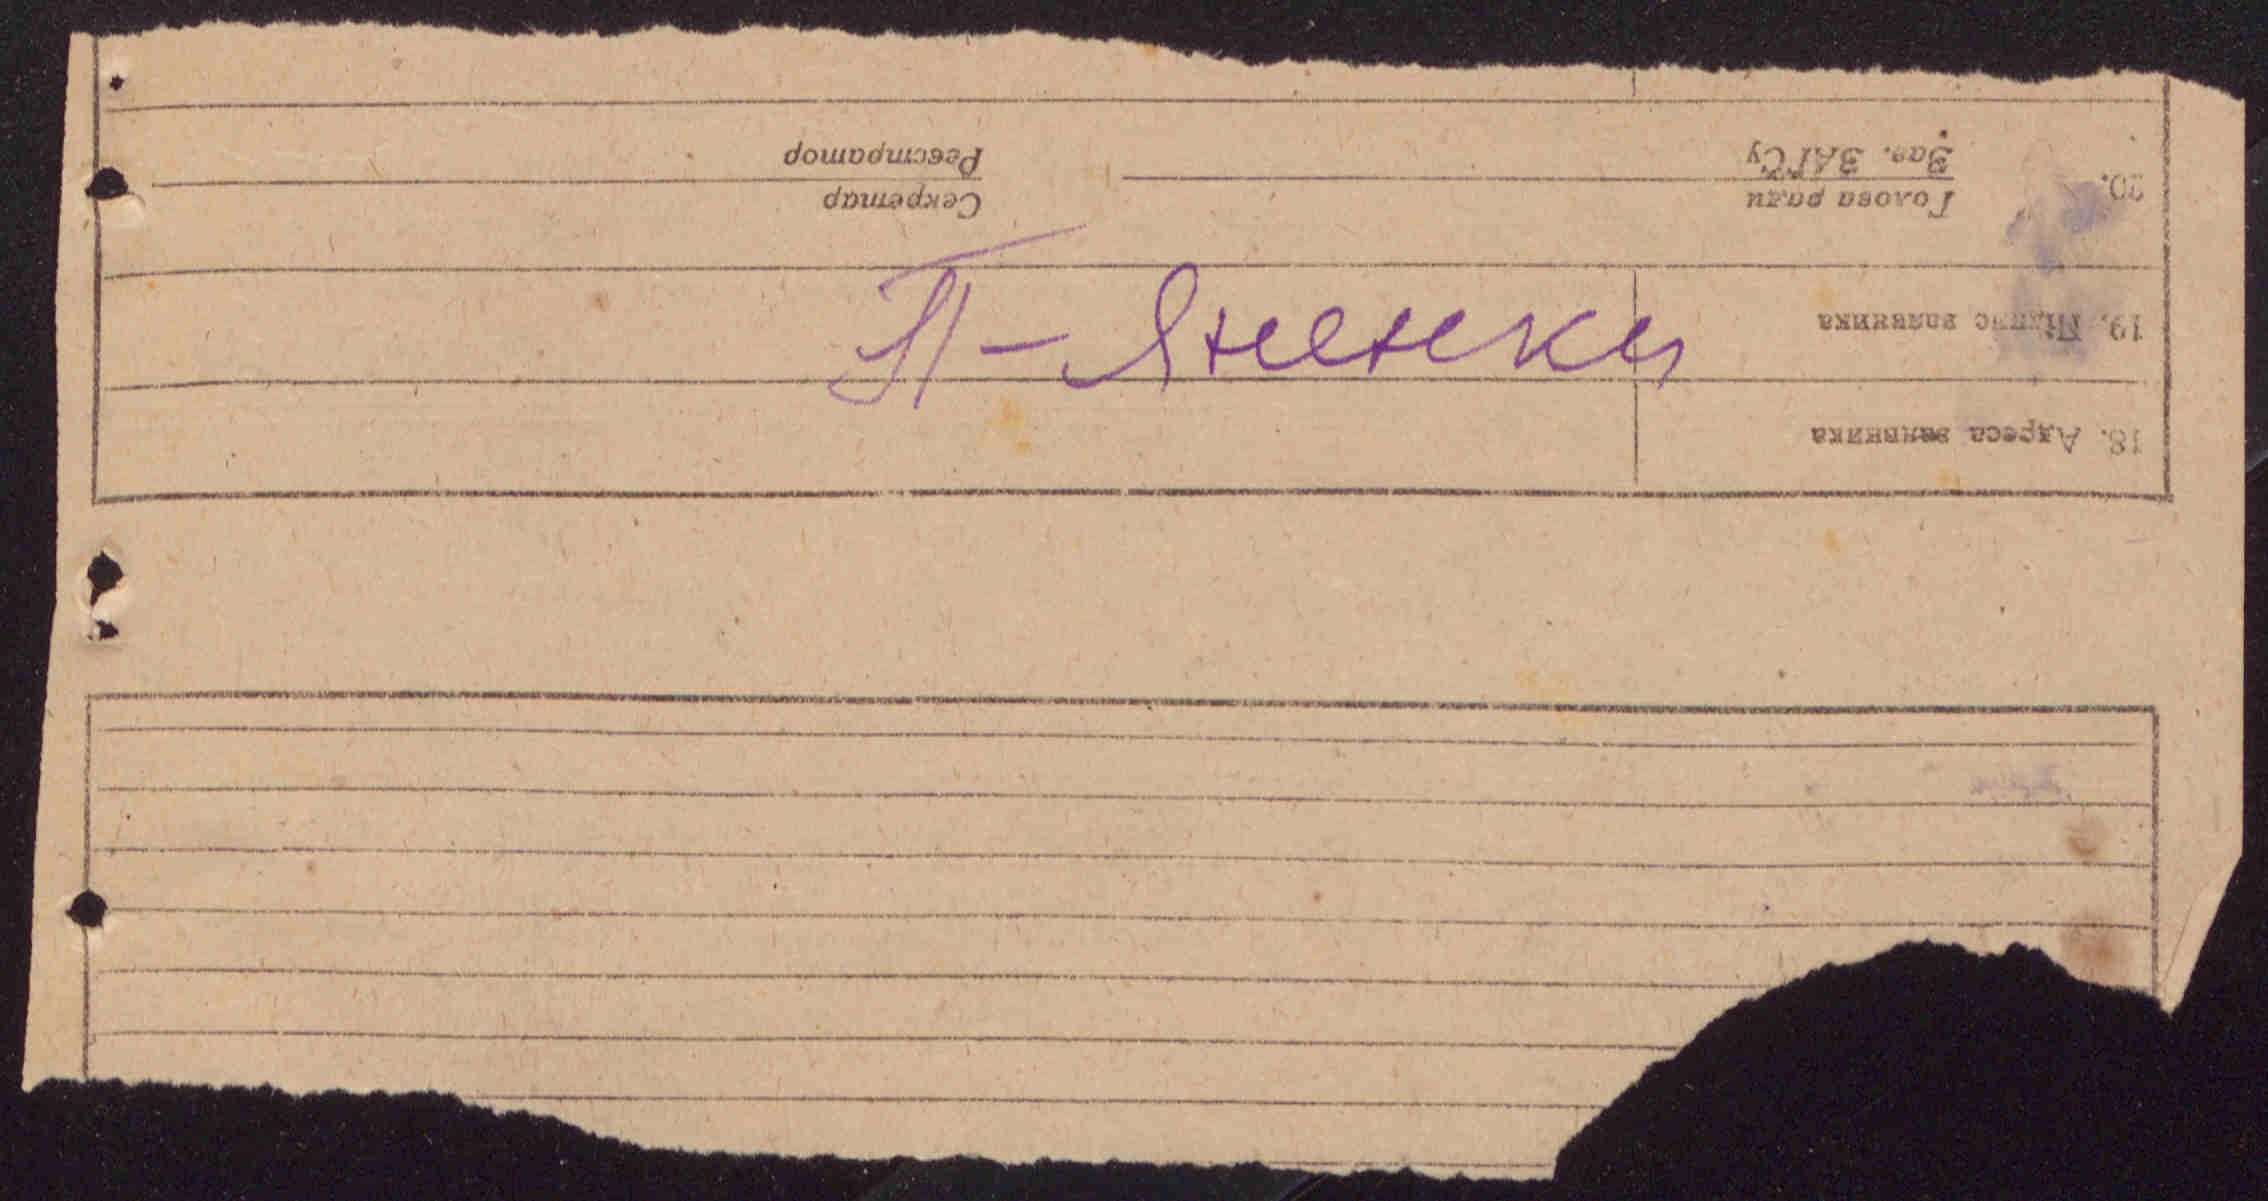 П-Яненки
18. Адреса заявника
19. Підпис заявника
20. Голова ради Секретар
Зав. ЗАГСу Реєстратор